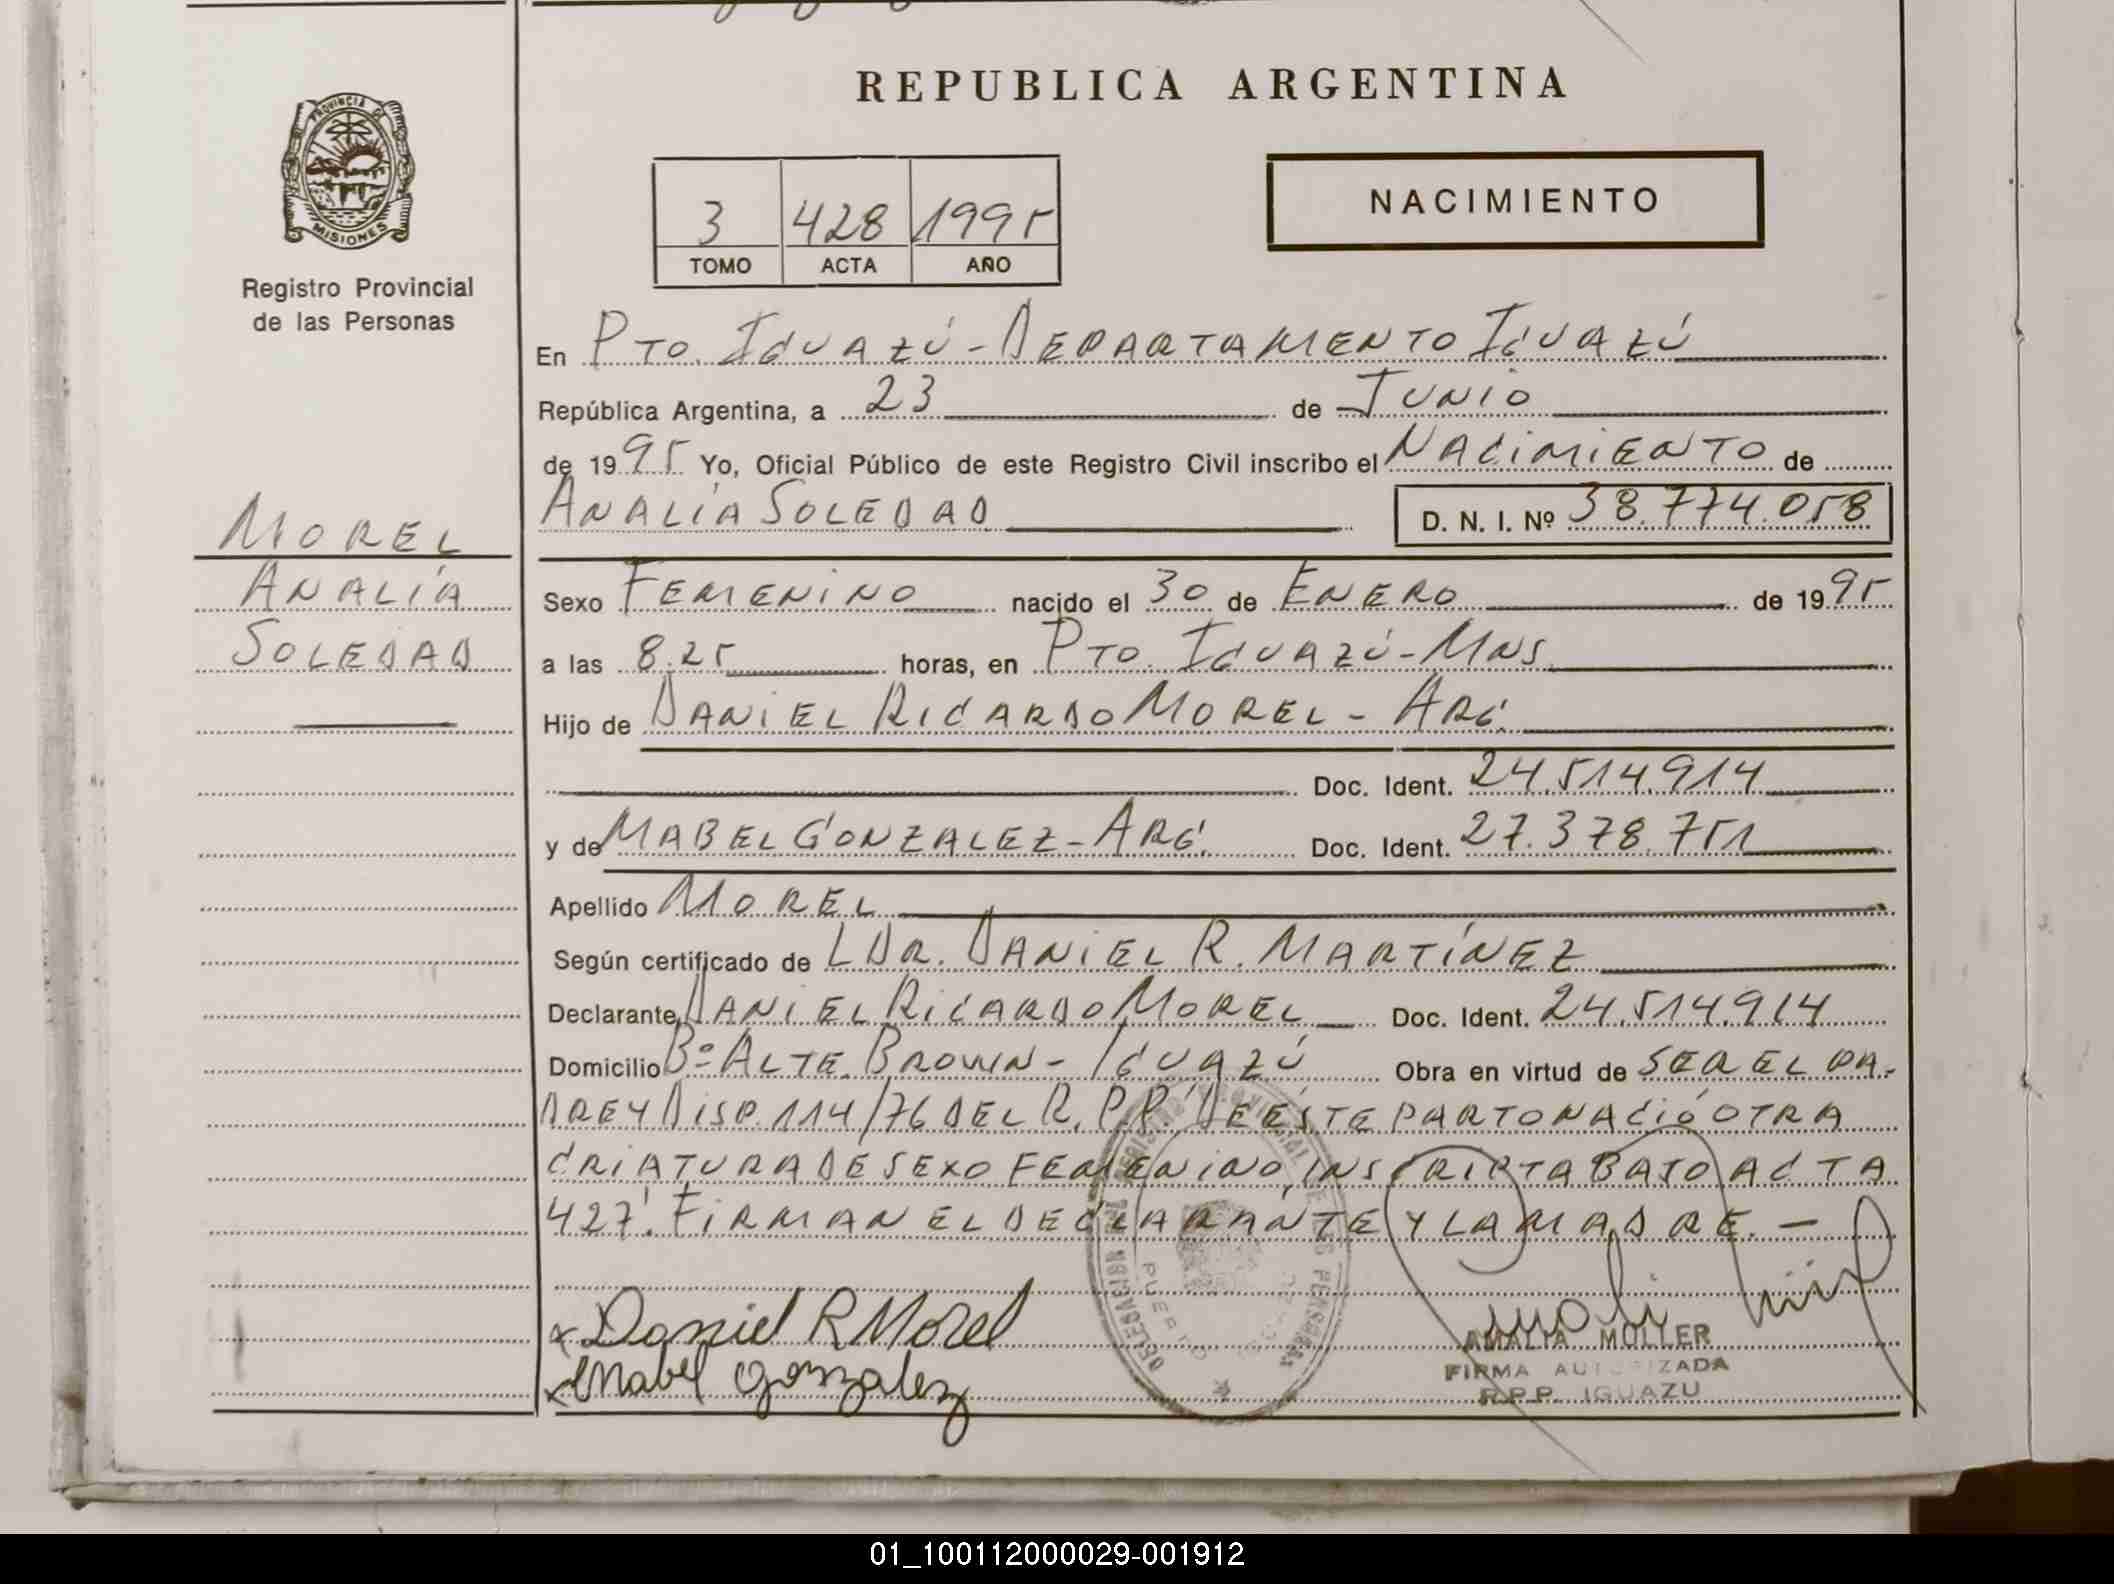 REPUBLICA ARGENTINA
PROVINCIA DE
MISIONES
Registro Provincial
de las Personas
3 428 1995
TOMO ACTA AÑO
NACIMIENTO
En PTO. IGUAZÚ - DEPARTAMENTO IGUAZÚ
República Argentina, a 23 de JUNIO
de 1995 Yo, Oficial Público de este Registro Civil inscribo el NACIMIENTO de
ANALÍA SOLEDAD D. N. I. Nº 38.774.058
MOREL
ANALÍA
SOLEDAD
Sexo FEMENINO nacido el 30 de ENERO de 1995
a las 8.25 horas, en PTO. IGUAZÚ - MNS.
Hijo de DANIEL RICARDO MOREL - ARG.
Doc. Ident. 24.514.914
y de MABEL GONZALEZ - ARG. Doc. Ident. 27.378.751
Apellido MOREL
Según certificado de L DR. DANIEL R. MARTÍNEZ
Declarante DANIEL RICARDO MOREL Doc. Ident. 24.514.914
Domicilio Bº ALTE. BROWN - IGUAZÚ Obra en virtud de SER EL PA-
DRE Y DISP. 114/76 DEL R.P.P. DE ESTE PARTO NACIÓ OTRA
CRIATURA DE SEXO FEMENINO, INSCRIPTA BAJO ACTA
427. FIRMAN EL DECLARANTE Y LA MADRE. -
x Daniel R Morel
x Mabel Gonzalez
DELEGACION DEL REGISTRO PROVINCIAL DE LAS PERSONAS
PUERTO IGUAZU
AMALIA MULLER
FIRMA AUTORIZADA
R.P.P. IGUAZU
01_100112000029-001912